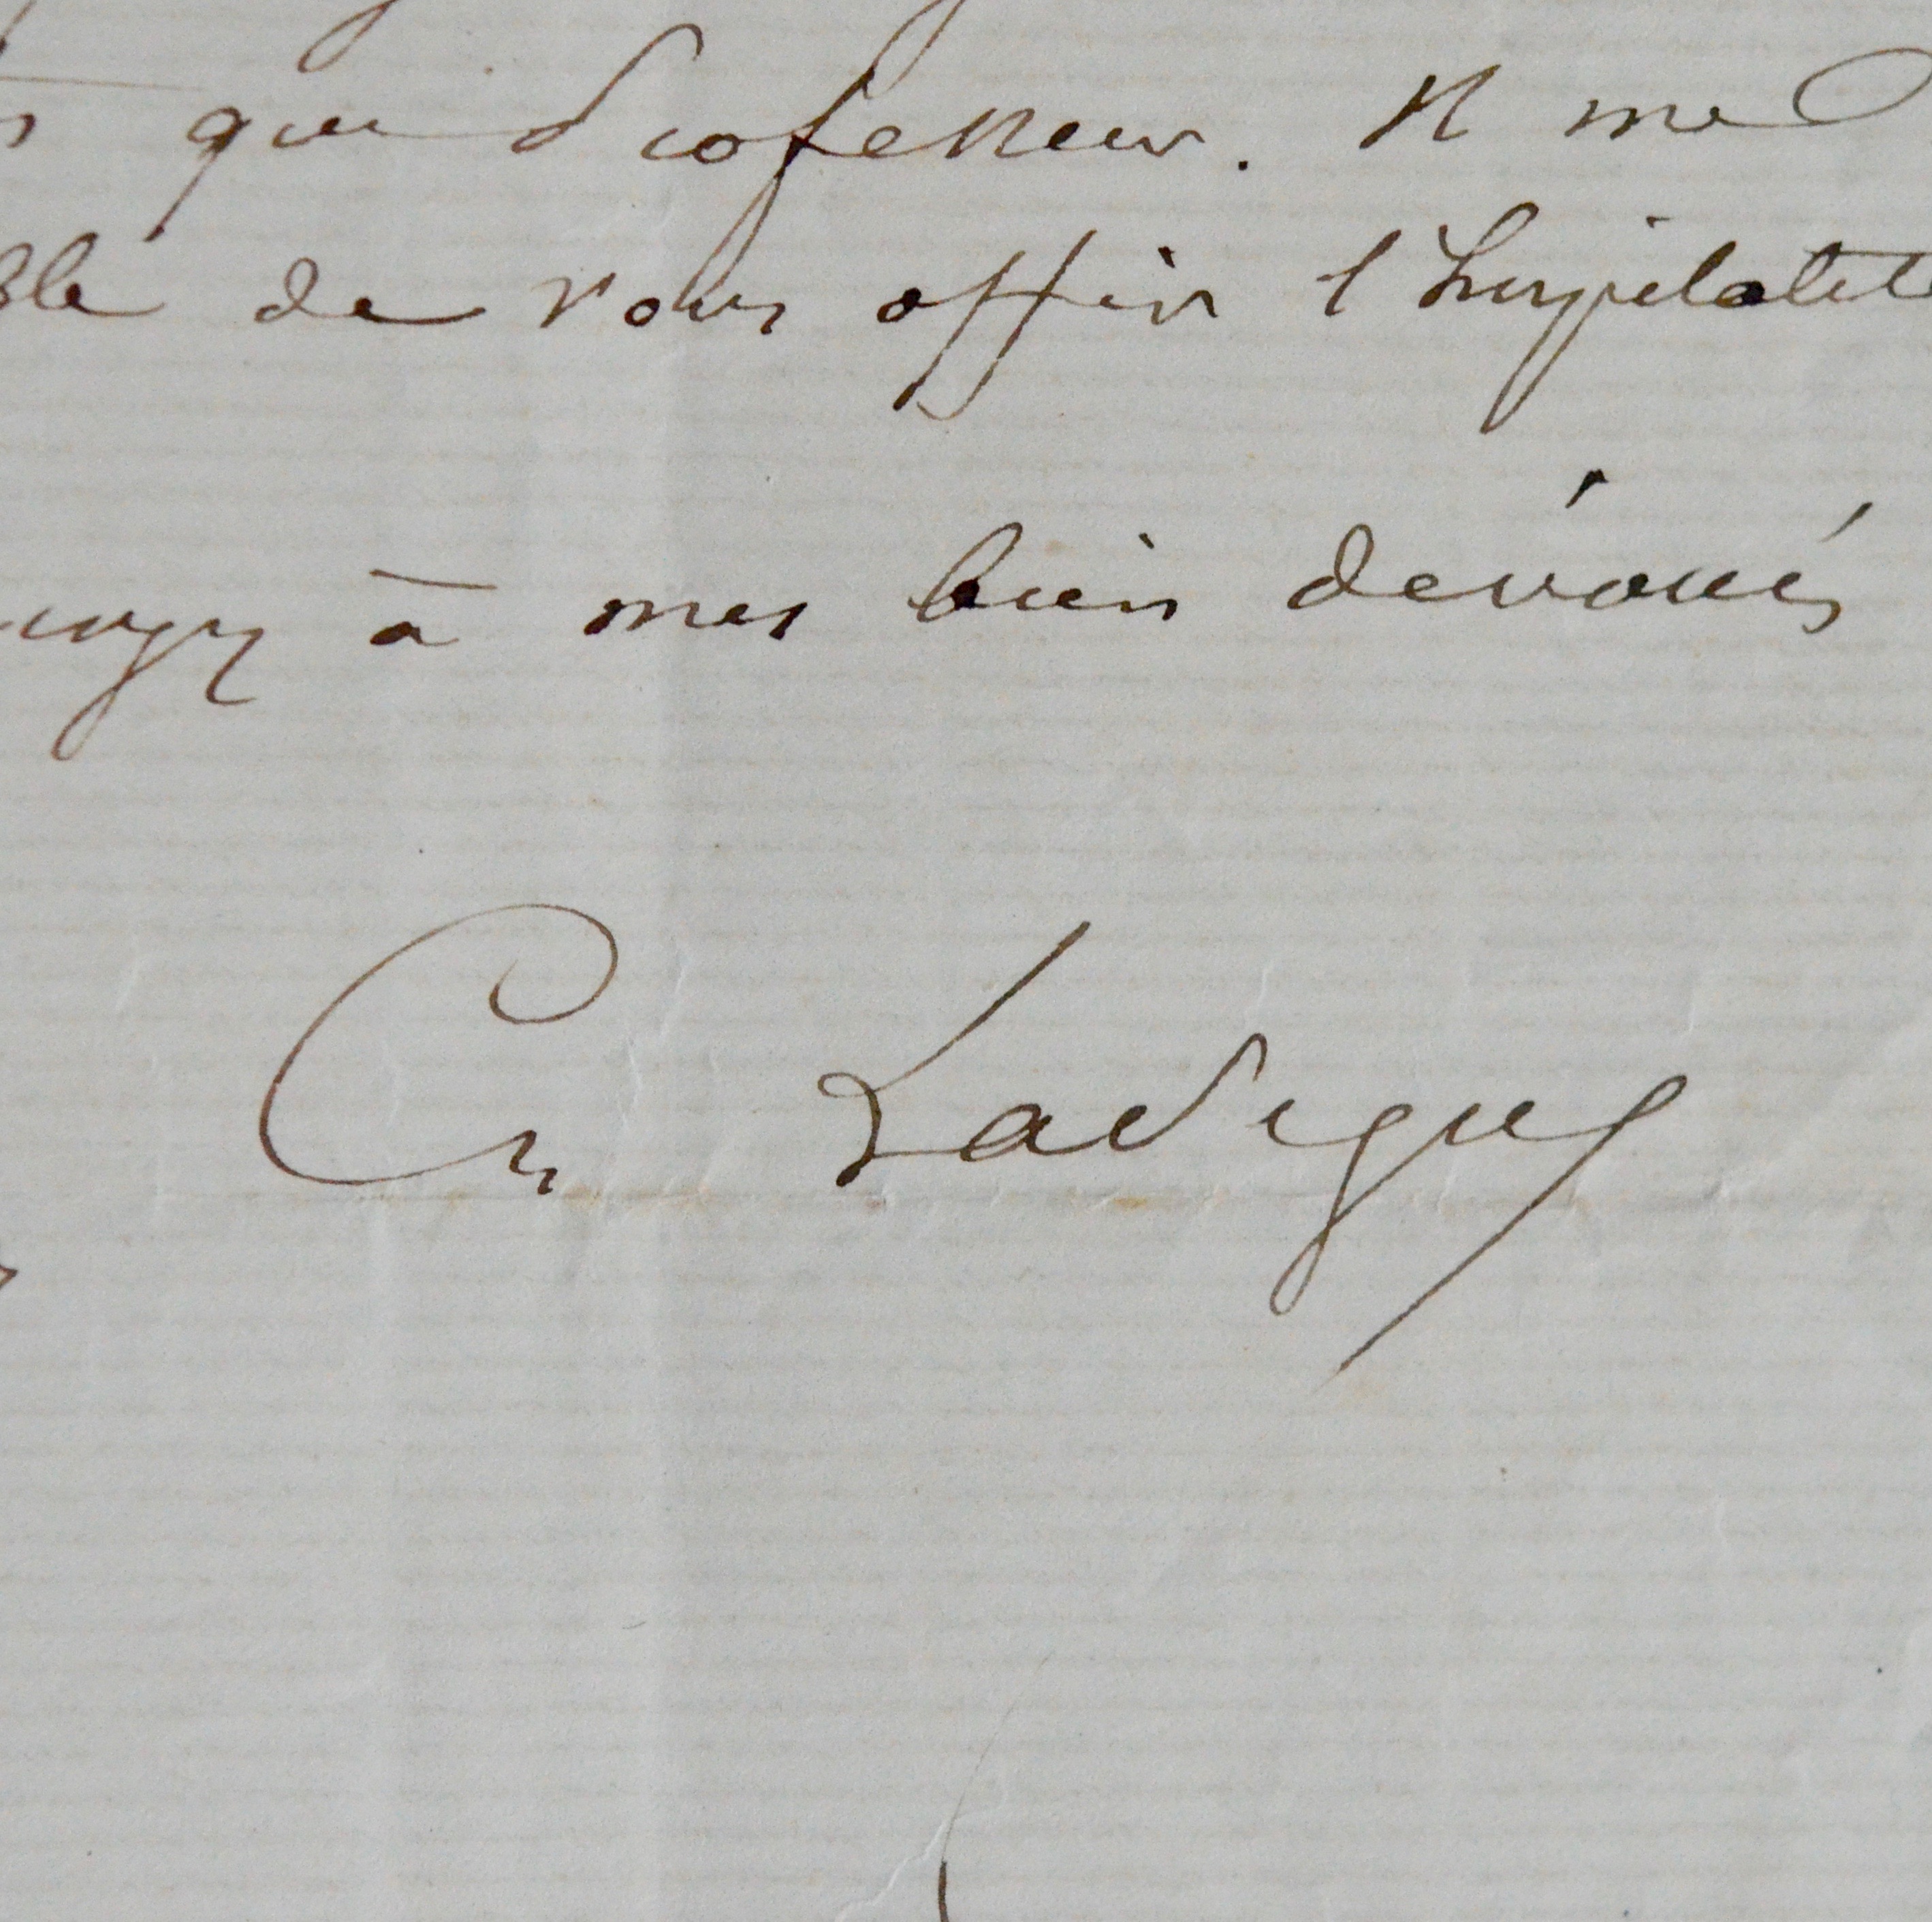 que Professeur. Il me
ble de vous offrir l'hospitalité
croyez à mes bien dévoués
Ch Ladrey